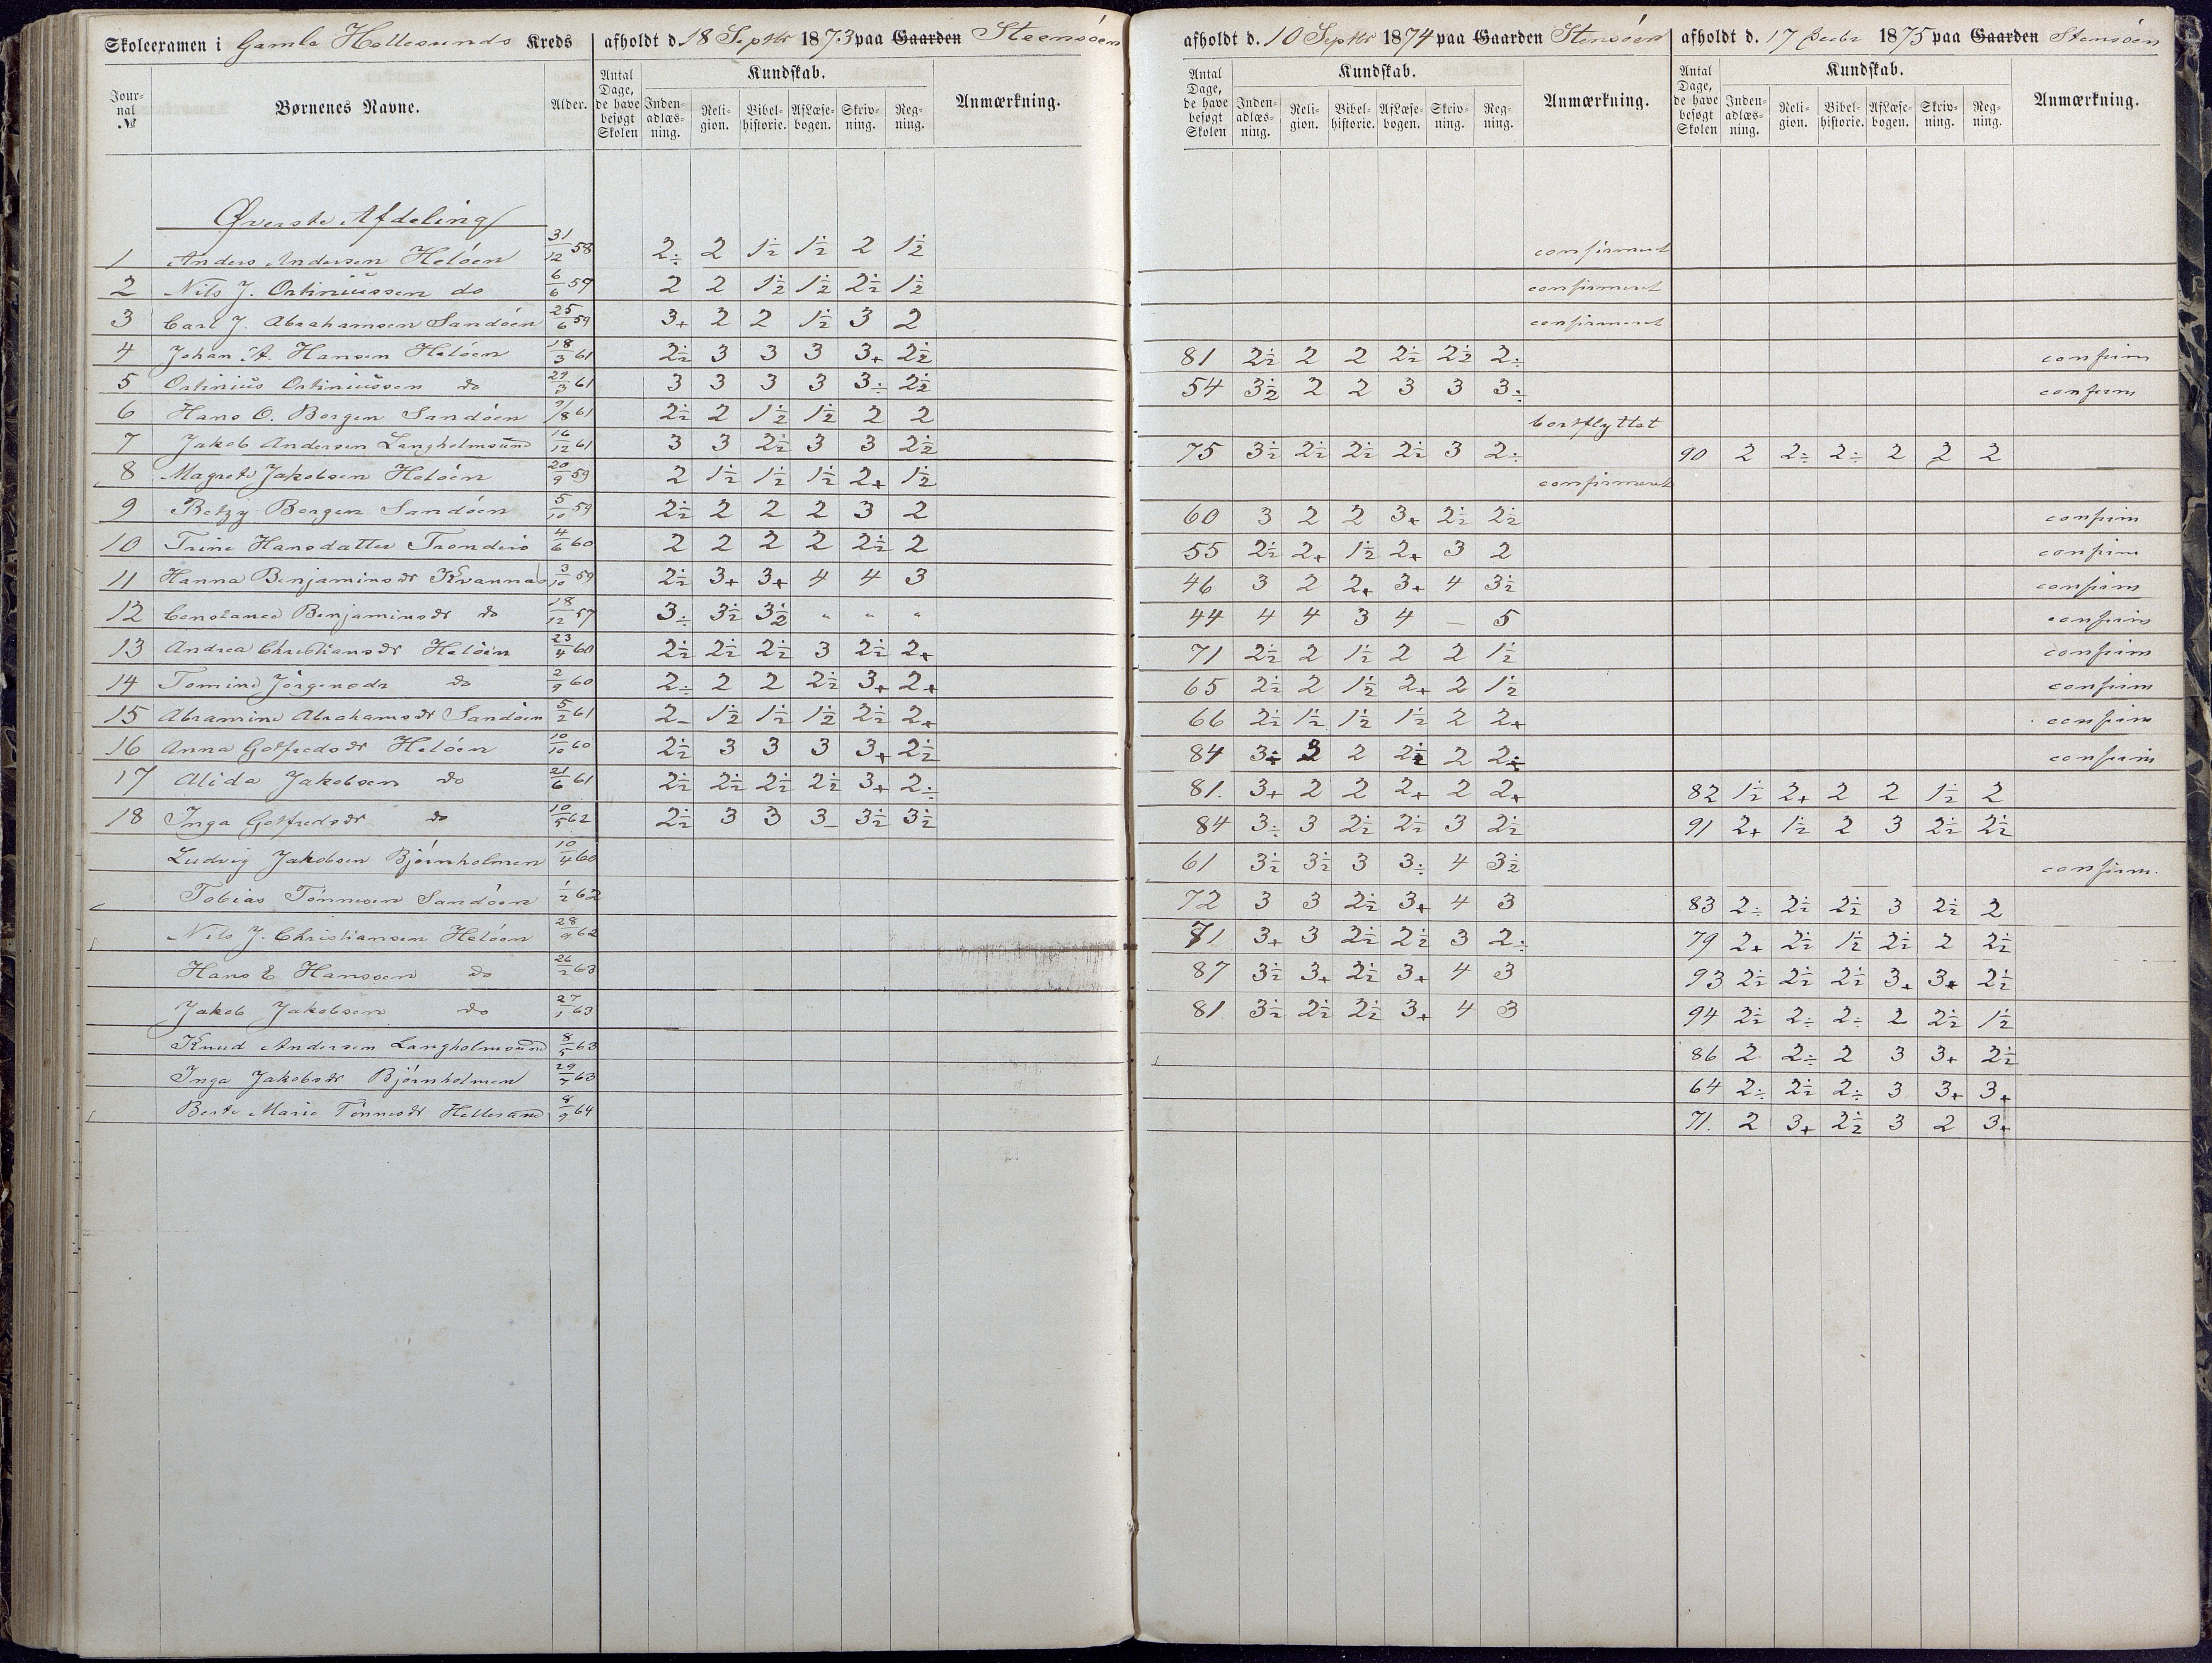 Skoleexamen i Gamle Hellesunds Kreds afholdt d. 18 Septbr 1873 paa Gaarden Steensøen afholdt d. 10 Septbr 1874 paa Gaarden Stensøen afholdt d. 17 1875 paa Gaarden Stensøen
Journal № Børnenes Navne. Alder. Antal Dage, de have besøgt Skolen Kundskab. Indenadlæsning. Religion. Bibelhistorie. Af Læsebogen. Skrivning. Regning. Anmærkning. Antal Dage, de have besøgt Skolen Kundskab. Indenadlæsning. Religion. Bibelhistorie. Af Læsebogen. Skrivning. Regning. Anmærkning. Antal Dage, de have besøgt Skolen Kundskab. Indenadlæsning. Religion. Bibelhistorie. Af Læsebogen. Skrivning. Regning. Anmærkning.
Øverste Afdeling
1 Anders Andersen Heløen 31/12 58 2÷ 2 1½ 1½ 2 1½ confirmeret
2 Nils J. Ortiniussen do 6/6 59 2 2 1½ 1½ 2½ 1½ confirmeret
3 Carl J. Abrahamsen Sandøen 25/6 59 3+ 2 2 1½ 3 2 confirmeret
4 Johan A. Hansen Heløen 18/3 61 2½ 3 3 3 3+ 2½ 81 2½ 2 2 2½ 2½ 2÷ confirm
5 Ortinius Ortiniussen do 29/3 61 3 3 3 3 3÷ 2½ 54 3½ 2 2 3 3 3÷ confirm
6 Hans O. Borgen Sandøen 9/8 61 2½ 2 1½ 1½ 2 2 bortflyttet
7 Jakob Andersen Langholmsund 16/12 61 3 3 2½ 3 3 2½ 75 3½ 2½ 2½ 2½ 3 2÷ 90 2 2÷ 2÷ 2 2 2
8 Magrete Jakobsen Heløen 20/9 59 2 1½ 1½ 1½ 2+ 1½ confirmeret
9 Betzy Borgen Sandøen 5/10 59 2½ 2 2 2 3 2 60 3 2 2 3+ 2½ 2½ confirm
10 Trine Hansdatter 4/6 60 2 2 2 2 2½ 2 55 2½ 2+ 1½ 2+ 3 2 confirm
11 Hanna Benjaminsdr Kvannes 3/10 59 2½ 3+ 3+ 4 4 3 46 3 2 2+ 3+ 4 3½ confirm
12 Constance Benjaminsdr do 18/12 57 3÷ 3½ 3½ " " " 44 4 4 3 4 — 5 confirm
13 Andrea Christiansdr Heløen 23/4 60 2½ 2½ 2½ 3 2½ 2+ 71 2½ 2 1½ 2 2 1½ confirm
14 Tomine Jørgensdr do 2/9 60 2÷ 2 2 2½ 3+ 2+ 65 2½ 2 1½ 2+ 2 1½ confirm
15 Abramine Abrahamsdr Sandøen 5/2 61 2- 1½ 1½ 1½ 2½ 2+ 66 2½ 1½ 1½ 1½ 2 2+ confirm
16 Anna Gotfredsdr Heløen 10/10 60 2½ 3 3 3 3+ 2½ 84 3÷ 3 2 2½ 2 2÷ confirm
17 Alida Jakobsen do 21/6 61 2½ 2½ 2½ 2½ 3+ 2÷ 81. 3+ 2 2 2+ 2 2+ 82 1½ 2+ 2 2 1½ 2
18 Inga Gotfredsdr do 10/5 62 2½ 3 3 3- 3½ 3½ 84 3÷ 3 2½ 2½ 3 2½ 91 2+ 1½ 2 3 2½ 2½
Ludvig Jakobsen Bjørnholmen 10/4 60 61 3½ 3½ 3 3÷ 4 3½ confirm.
Tobias Tønnesen Sandøen 1/2 62 72 3 3 2½ 3+ 4 3 83 2÷ 2½ 2½ 3 2½ 2
Nils J. Christiansen Heløen 28/9 62 81 3+ 3 2½ 2½ 3 2÷ 79 2+ 2½ 1½ 2½ 2 2½
Hans E Hanssen do 26/2 63 87 3½ 3+ 2½ 3+ 4 3 93 2½ 2½ 2½ 3+ 3+ 2½
Jakob Jakobsen do 27/1 63 81 3½ 2½ 2½ 3+ 4 3 94 2½ 2÷ 2÷ 2 2½ 1½
Knud Andersen Langholmsund 8/5 63 86 2 2÷ 2 3 3+ 2½
Inga Jakobsdr Bjørnholmen 29/7 63 64 2÷ 2½ 2÷ 3 3+ 3+
Berte Marie Tønnesdr Hellesund 8/9 64 71. 2 3+ 2½ 3 2 3+